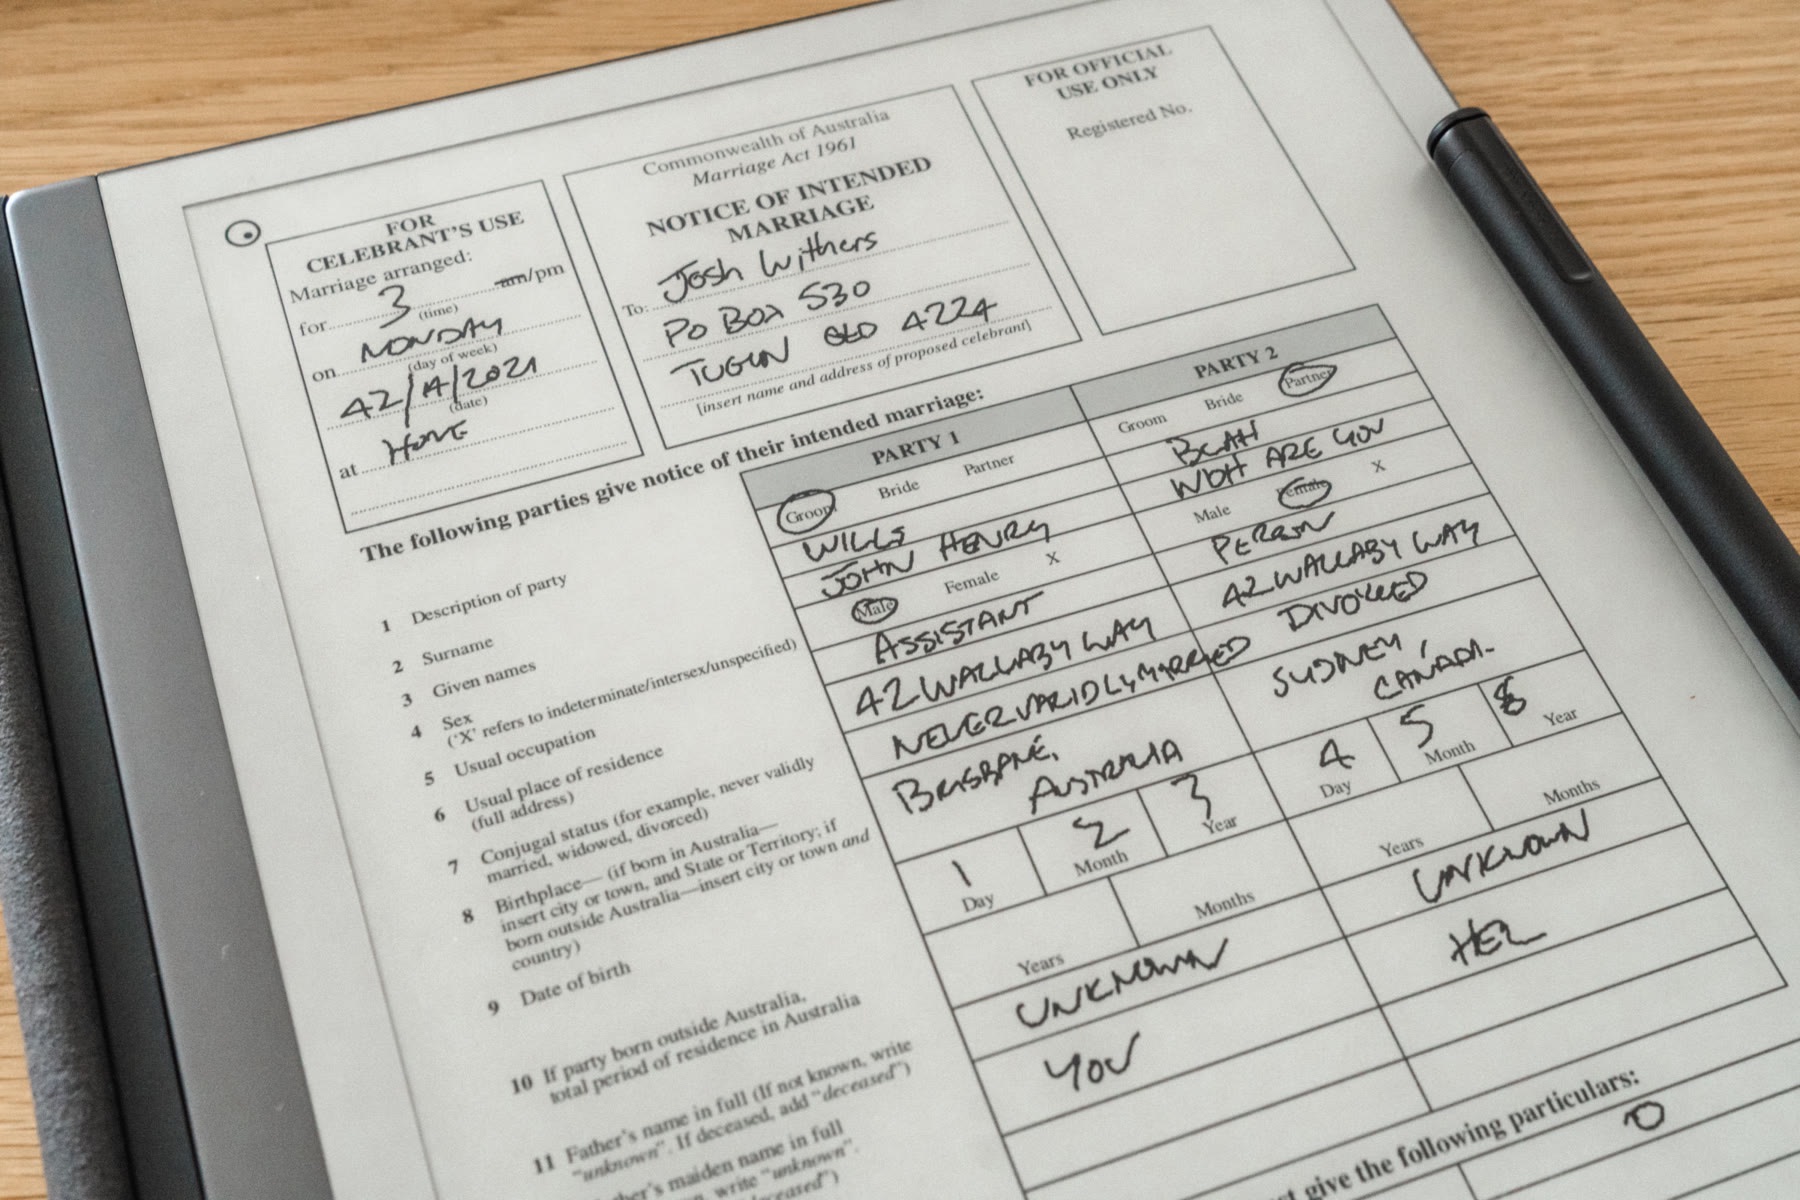 FOR
CELEBRANT'S USE
Marriage arranged:
for 3 am/pm
(time)
on MONDAY
(day of week)
42/14/2021
(date)
at HOME
Commonwealth of Australia
Marriage Act 1961
NOTICE OF INTENDED
MARRIAGE
To: Josh Withers
PO BOX 530
TUGUN QLD 4224
[insert name and address of proposed celebrant]
FOR OFFICIAL
USE ONLY
Registered No.
The following parties give notice of their intended marriage:
PARTY 1
PARTY 2
1 Description of party
Groom Bride Partner
Groom Bride Partner
2 Surname
WILLS
BLAH
3 Given names
JOHN HENRY
WOH ARE YOU
4 Sex
('X' refers to indeterminate/intersex/unspecified)
Male Female X
Male Female X
5 Usual occupation
ASSISTANT
PERSON
6 Usual place of residence
(full address)
42 WALLABY WAY
42 WALLABY WAY
7 Conjugal status (for example, never validly
married, widowed, divorced)
NEVER VARIDLY MARRIED
DIVORCED
8 Birthplace— (if born in Australia—
insert city or town, and State or Territory; if
born outside Australia—insert city or town and
country)
BRISBANE,
AUSTRALIA
SYDNEY,
9 Date of birth
1 2 3
Day Month Year
4 5 8
Day Month Year
10 If party born outside Australia,
total period of residence in Australia
Years Months
Years Months
11 Father's name in full (If not known, write
"unknown". If deceased, add "deceased")
UNKNOWN
UNKNOWN
maiden name in full
write "unknown".
YOU
HER
give the following particulars:
0